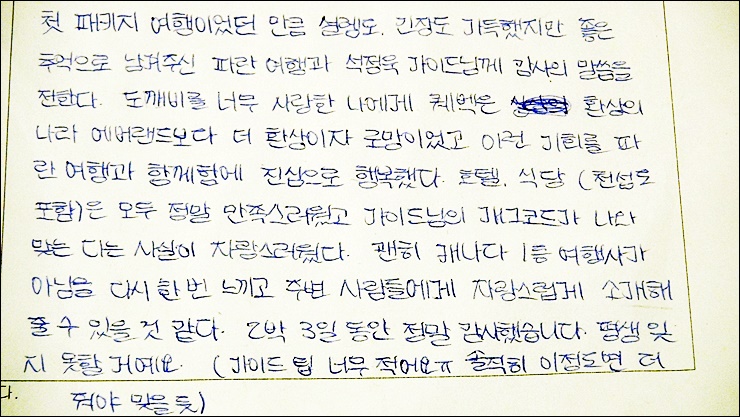 첫 패키지 여행이었던 만큼 설렘도, 긴장도 가득했지만 좋은
추억으로 남겨주신 파란 여행과 석정욱 가이드님께 감사의 말씀을
전한다. 도깨비를 너무 사랑한 나에게 퀘벡은 환상의
나라 에버랜드보다 더 환상이자 로망이었고 이런 기회를 파
란 여행과 함께함에 진심으로 행복했다. 호텔, 식당 (천섬도
포함)은 모두 정말 만족스러웠고 가이드님의 개그코드가 나와
맞는 다는 사실이 자랑스러웠다. 괜히 캐나다 1등 여행사가
아님을 다시 한 번 느끼고 주변 사람들에게 자랑스럽게 소개해
줄 수 있을 것 같다. 2박 3일 동안 정말 감사했습니다. 평생 잊
지 못할 거예요. (가이드 팁 너무 적어요ㅠ 솔직히 이정도면 더
다. 줘야 맞을 듯)